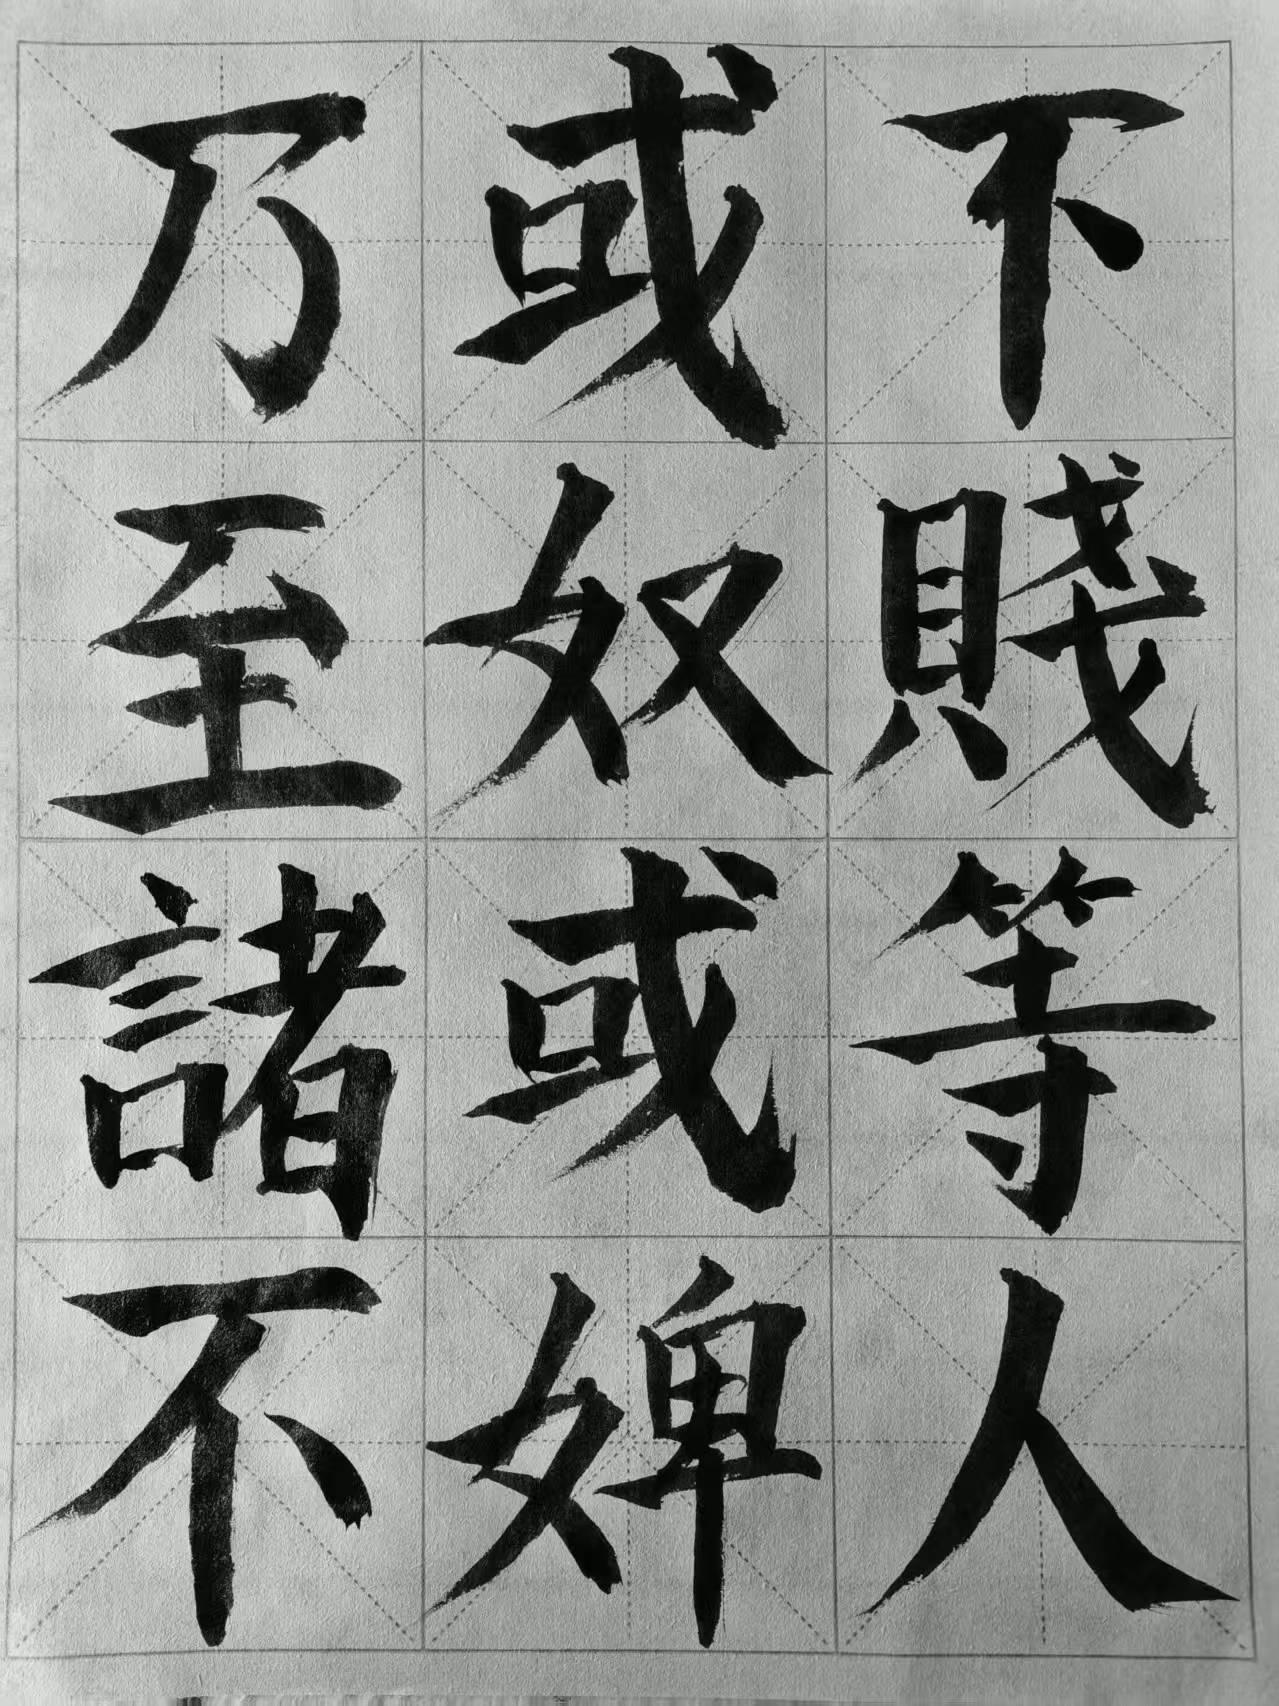 下賤等人
或奴或婢
乃至諸不